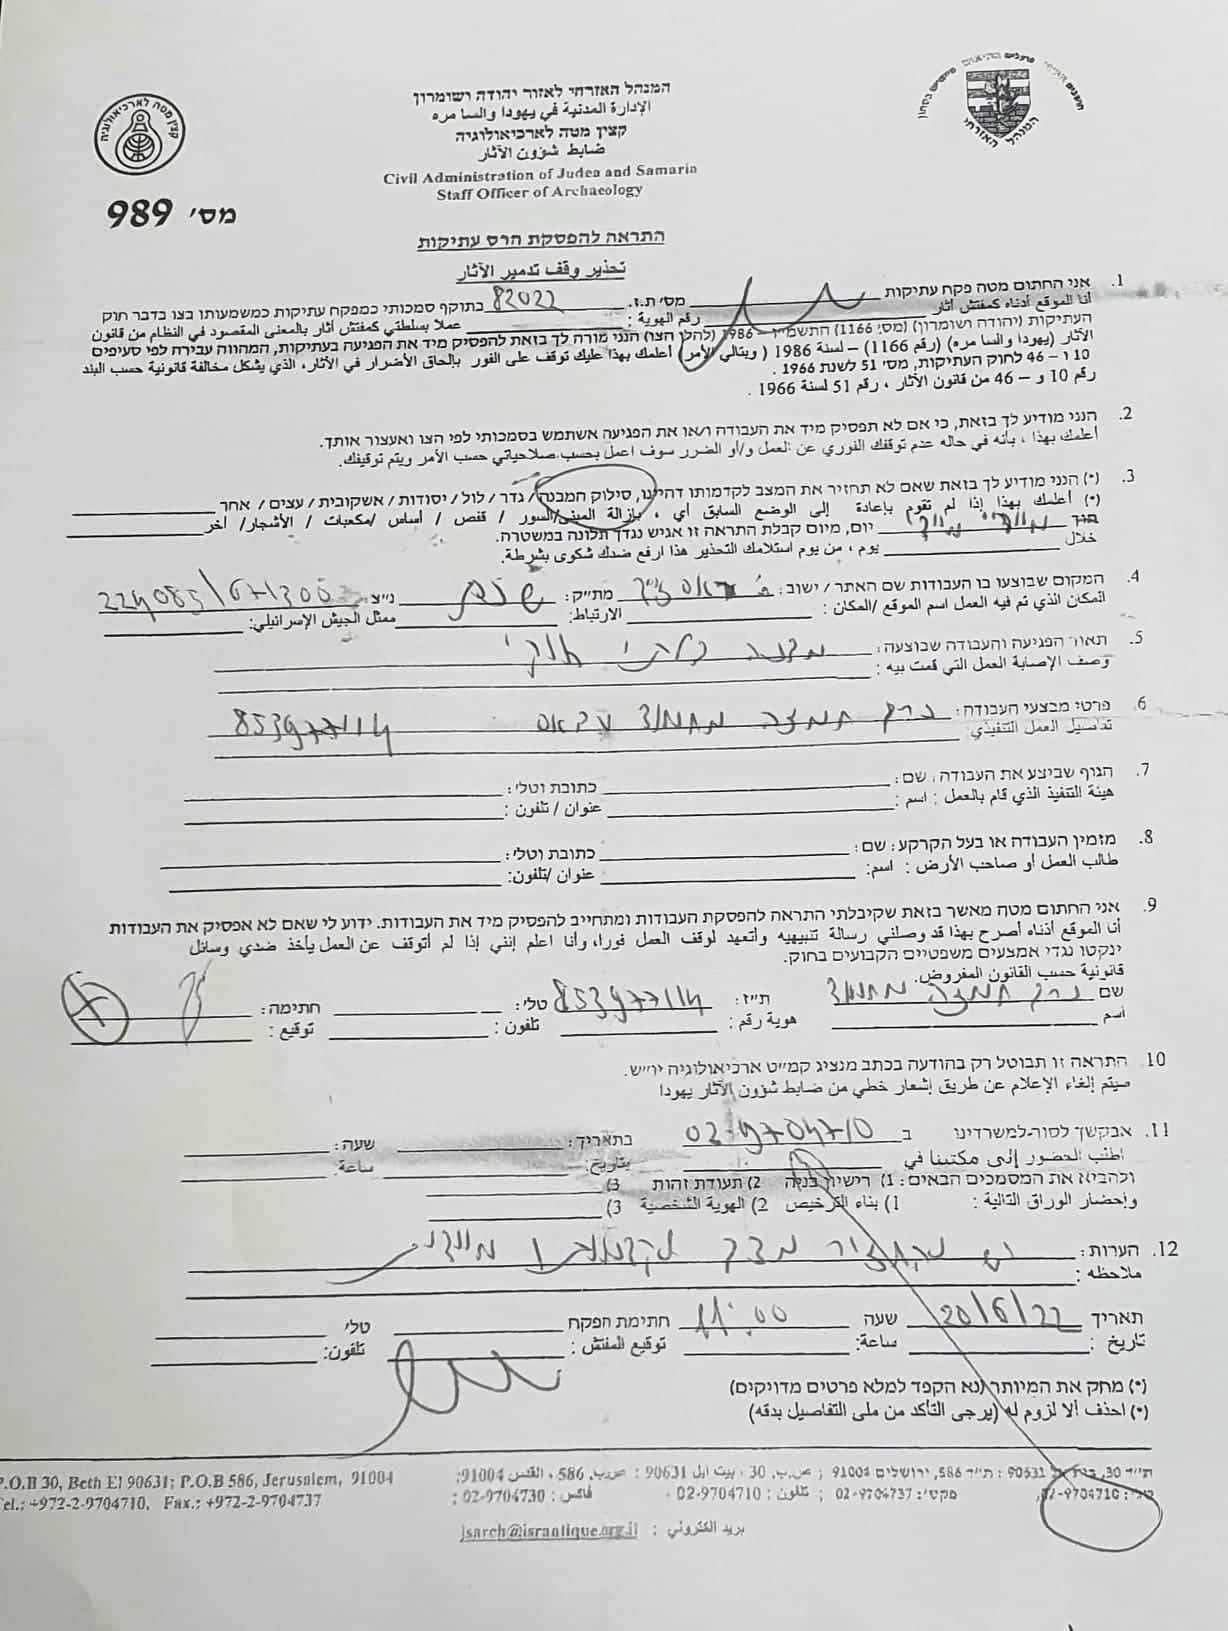 המנהל האזרחי לאזור יהודה ושומרון
الإدارة المدنية في يهودا والسا مره
קצין מטה לארכיאולוגיה
ضابط شؤون الآثار
Civil Administration of Judea and Samaria
Staff Officer of Archaeology
קצין מטה לארכיאולוגיה
המנהל האזרחי
מס' 989
התראה להפסקת הרס עתיקות
تحذير وقف تدمير الآثار
1. אני החתום מטה פקח עתיקות מס' ת.ז. 82022 בתוקף סמכותי כמפקח עתיקות כמשמעותו בצו בדבר חוק
أنا الموقع أدناه كمفتش آثار رقم الهوية : عملا بسلطتي كمفتش آثار بالمعنى المقصود في النظام من قانون
העתיקות (יהודה ושומרון) (מס' 1166) התשמ"ו – 1986 (להלן הצו) הנני מורה לך בזאת להפסיק מיד את הפגיעה בעתיקות, המהווה עבירה לפי סעיפים
الآثار (يهودا والسا مره) (رقم 1166) – لسنة 1986 ( وبتالي الأمر) أعلمك بهذا عليك توقف على الفور بإلحاق الأضرار في الآثار، الذي يشكل مخالفة قانونية حسب البند
10 ו – 46 לחוק העתיקות, מס' 51 לשנת 1966 .
رقم 10 و – 46 من قانون الآثار ، رقم 51 لسنة 1966 .
2. הנני מודיע לך בזאת, כי אם לא תפסיק מיד את העבודה ו/או את הפגיעה אשתמש בסמכותי לפי הצו ואעצור אותך.
أعلمك بهذا ، بأنه في حاله عدم توقفك الفوري عن العمل و/أو الضرر سوف اعمل بحسب صلاحياتي حسب الأمر ويتم توقيفك.
3. (*) הנני מודיע לך בזאת שאם לא תחזיר את המצב לקדמותו דהיינו, סילוק המבנה/ גדר / לול / יסודות / אשקובית / עצים / אחר
(*) أعلمك بهذا إذا لم تقوم بإعادة إلى الوضع السابق أي ، بإزالة المبنى/السور / قفص / أساس /مكعبات / الأشجار/ أخر
תוך יום, מיום קבלת התראה זו אגיש נגדך תלונה במשטרה.
خلال يوم ، من يوم استلامك التحذير هذا ارفع ضدك شكوى بشرطة.
4. המקום שבוצעו בו העבודות שם האתר / ישוב : מת"ק: נ"צ: 224085/671300
المكان الذي تم فيه العمل اسم الموقع /المكان : الارتباط: ممثل الجيش الإسرائيلي:
5. תאור הפגיעה והעבודה שבוצעה: מבנה בלתי חוקי
وصف الإصابة العمل التي قمت بيه :
6. פרטי מבצעי העבודה: חמזה מחמוד עבאס 853977114
تفاصيل العمل التنفيذي:
7. הגוף שביצע את העבודה , שם: כתובת וטלי:
هيئة التنفيذ الذي قام بالعمل : اسم : عنوان / تلفون :
8. מזמין העבודה או בעל הקרקע: שם: כתובת וטלי:
طالب العمل أو صاحب الأرض : اسم: عنوان /تلفون:
9. אני החתום מטה מאשר בזאת שקיבלתי התראה להפסקת העבודות ומתחייב להפסיק מיד את העבודות. ידוע לי שאם לא אפסיק את העבודות
أنا الموقع أدناه أصرح بهذا قد وصلني رسالة تنبيهيه وأتعهد لوقف العمل فورا، وأنا اعلم إنني إذا لم أتوقف عن العمل يأخذ ضدي وسائل
ינקטו נגדי אמצעים משפטיים הקבועים בחוק.
قانونية حسب القانون المفروض.
שם חמזה מחמוד ת"ז: 853977114 טלי: חתימה:
اسم هوية رقم: تلفون: توقيع :
10. התראה זו תבוטל רק בהודעה בכתב מנציג קמ"ט ארכיאולוגיה יו"ש.
سيتم إلغاء الإعلام عن طريق إشعار خطي من ضابط شؤون الآثار يهودا
11. אבקשך לסור למשרדינו ב 02-9704710 בתאריך: שעה:
اطلب الحضور إلى مكتبنا في بتاريخ: ساعة:
ולהביא את המסמכים הבאים: 1) רישיון בניה 2) תעודת זהות 3)
وإحضار الوراق التالية : 1) بناء الترخيص 2) الهوية الشخصية 3)
12. הערות: יש להחזיר מצב לקדמותו מיידי
ملاحظه :
תאריך 20/6/22 שעה 11:00 חתימת הפקח טלי
تاريخ : ساعة: توقيع المفتش : تلفون:
(*) מחק את המיותר (נא הקפד למלא פרטים מדויקים)
(*) احذف ألا لزوم له (يرجى التأكد من ملى التفاصيل بدقه)
ת"ד 30, בית אל 90631 : ת"ד 586, ירושלים 91004 ; ص.ب, 30 , بيت ايل 90631 : ص.ب, 586 , القدس 91004:
P.O.B 30, Beth El 90631; P.O.B 586, Jerusalem, 91004
טלי: 02-9704710, פקסי: 02-9704737 ; تلفون : 02-9704710 ; فاكس : 02-9704730 ;
Tel.: +972-2-9704710, Fax.: +972-2-9704737
بريد الكتروني : jsarch@israntique.org.il